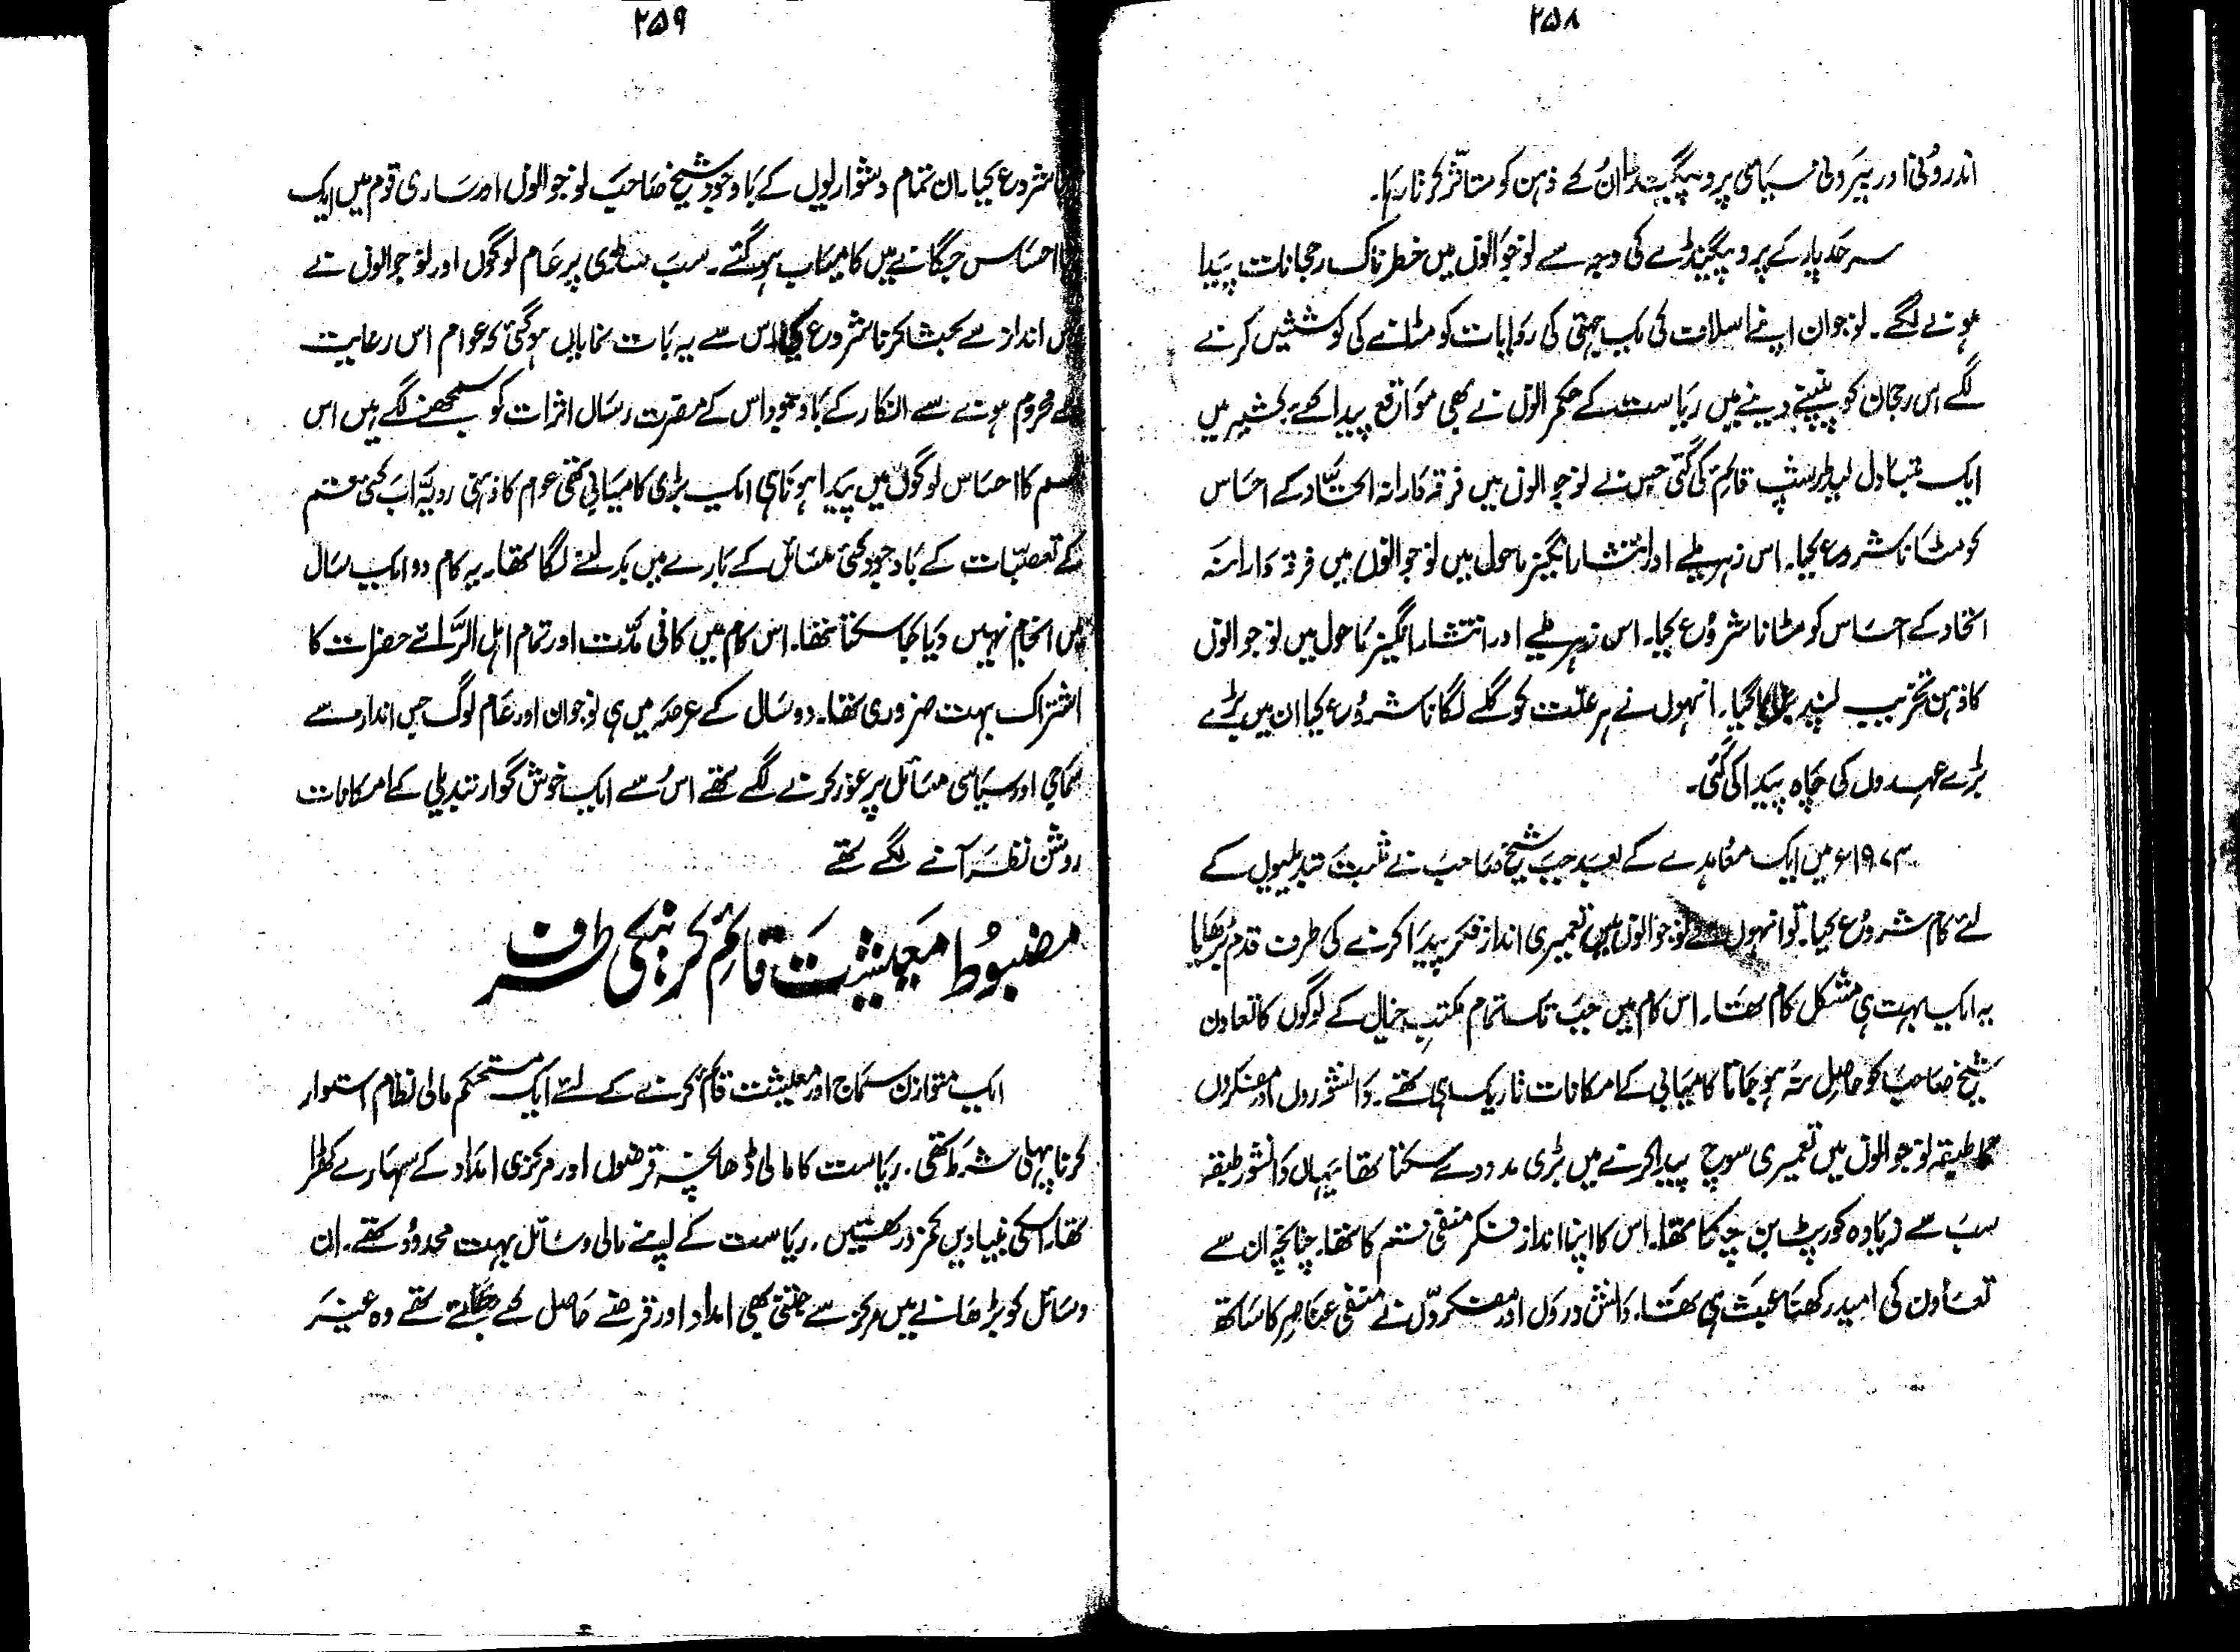 ۲۵۸
اندرونی اور بیرونی سیاسی پروپیگنڈا ان کے ذہن کو متاثر کرتا رہا۔
سرحد پار کے پروپیگنڈے کی وجہ سے نوجوانوں میں خطرناک رجحانات پیدا
ہونے لگے۔ نوجوان اپنے اسلاف کی یک جہتی کی روایات کو مٹانے کی کوششیں کرنے
لگے اس رجحان کو پنپنے دینے میں ریاست کے حکمرانوں نے بھی مواقع پیدا کئے۔ کشمیر میں
ایک متبادل لیڈرشپ قائم کی گئی جس نے نوجوانوں میں فرقہ دارانہ اتحاد کے احساس
کو مٹانا شروع کیا۔ اس زہریلے اور انتشار انگیز ماحول میں نوجوانوں میں فرقہ دارانہ
اتحاد کے احساس کو مٹانا شروع کیا۔ اس زہریلے اور انتشار انگیز ماحول میں نوجوانوں
کا ذہن تخریب پسند بنایا گیا۔ انہوں نے ہر علت کو گلے لگانا شروع کیا ان میں بڑے
بڑے عہدوں کی چاہ پیدا کی گئی۔
۱۹۷۴ء میں ایک معاہدے کے بعد جب شیخ صاحب نے مثبت تبدیلیوں کے
لئے کام شروع کیا۔ تو انہوں نے نوجوانوں میں تعمیری انداز فکر پیدا کرنے کی طرف قدم بڑھایا
یہ ایک بہت ہی مشکل کام تھا۔ اس کام میں جب تک تمام مکتبِ خیال کے لوگوں کا تعاون
شیخ صاحب کو حاصل نہ ہو جاتا کامیابی کے امکانات تاریک ہی تھے۔ دانشوروں اور مفکروں
کا طبقہ نوجوانوں میں تعمیری سوچ پیدا کرنے میں بڑی مدد دے سکتا تھا یہاں دانشور طبقہ
سب سے زیادہ کورپٹ بن چکا تھا۔ اس کا اپنا انداز فکر منفی قسم کا تھا۔ چنانچہ ان سے
تعاون کی امید رکھنا عبث ہی تھا۔ دانش دروں اور مفکروں نے منفی عناصر کا ساتھ
۲۵۹
شروع کیا۔ ان تمام دشواریوں کے باوجود شیخ صاحب نوجوانوں اور ساری قوم میں ایک
احساس جگانے میں کامیاب ہو گئے۔ سب سڈی پر عام لوگوں اور نوجوانوں نے
جس انداز سے بحث کرنا شروع کی اس سے یہ بات نمایاں ہو گئی کہ عوام اس رعایت
سے محروم ہونے سے انکار کے باوجود اس کے مضرت رساں اثرات کو سمجھنے لگے ہیں اس
قسم کا احساس لوگوں میں پیدا ہونا ہی ایک بڑی کامیابی تھی عوام کا ذہنی رویہ اب کئی قسم
کے تعصبات کے باوجود کئی مسائل کے بارے میں بدلنے لگا تھا۔ یہ کام دو ایک سال
میں انجام نہیں دیا جا سکتا تھا۔ اس کام میں کافی مدت اور تمام اہل الرائے حضرات کا
اشتراک بہت ضروری تھا۔ دو سال کے عرصہ میں ہی نوجوان اور عام لوگ جس انداز سے
سماجی اور سیاسی مسائل پر غور کرنے لگے تھے اس سے ایک خوش گوار تبدیلی کے امکانات
روشن نظر آنے لگے تھے
مضبوط معیشت قائم کرنیکی طرف
ایک متوازن سماج اور معیشت قائم کرنے کے لئے ایک مستحکم مالی نظام استوار
کرنا پہلی شرط تھی۔ ریاست کا مالی ڈھانچہ قرضوں اور مرکزی امداد کے سہارے کھڑا
تھا۔ اسکی بنیادیں کمزور تھیں۔ ریاست کے اپنے مالی وسائل بہت محدود تھے۔ ان
وسائل کو بڑھانے میں مرکز سے جتنی بھی امداد اور قرضے حاصل کئے جاتے تھے وہ غیر